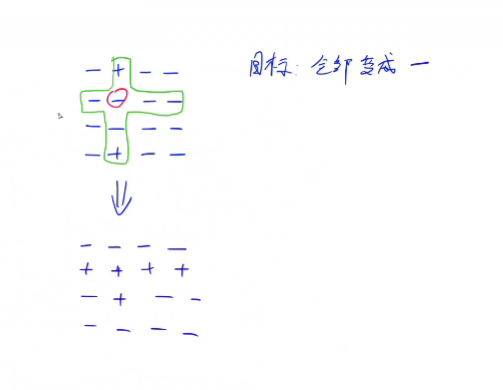 目标: 全部变成 —
— + — —
— — — —
— — — —
— + — —
— — — —
+ + + +
— + — —
— — — —